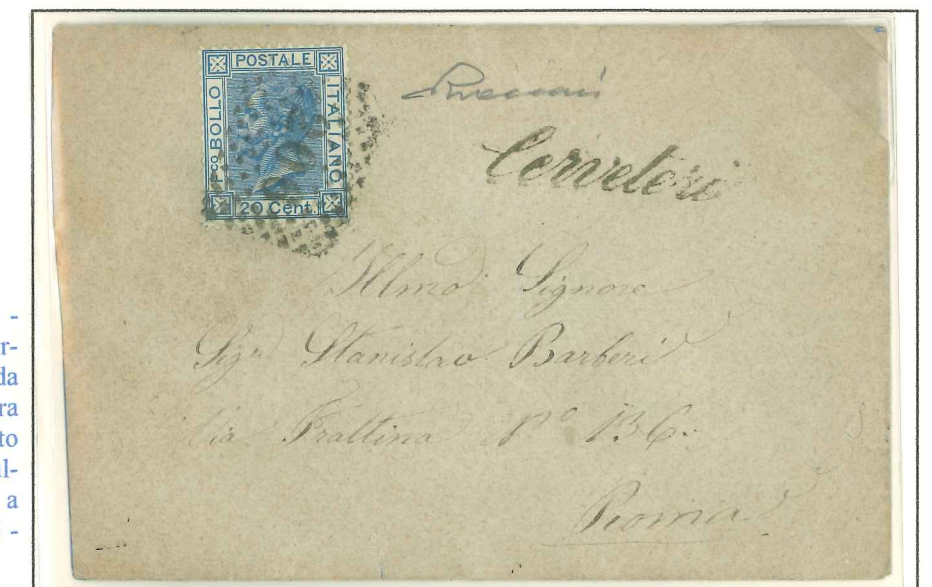 POSTALE
Pco BOLLO
ITALIANO
20 Cent.
Cerveteri
Illmo Signore
Sigr Stanislao Barberi
Via Frattina No 136.
Roma
-
r-
da
ra
to
l-
a
-